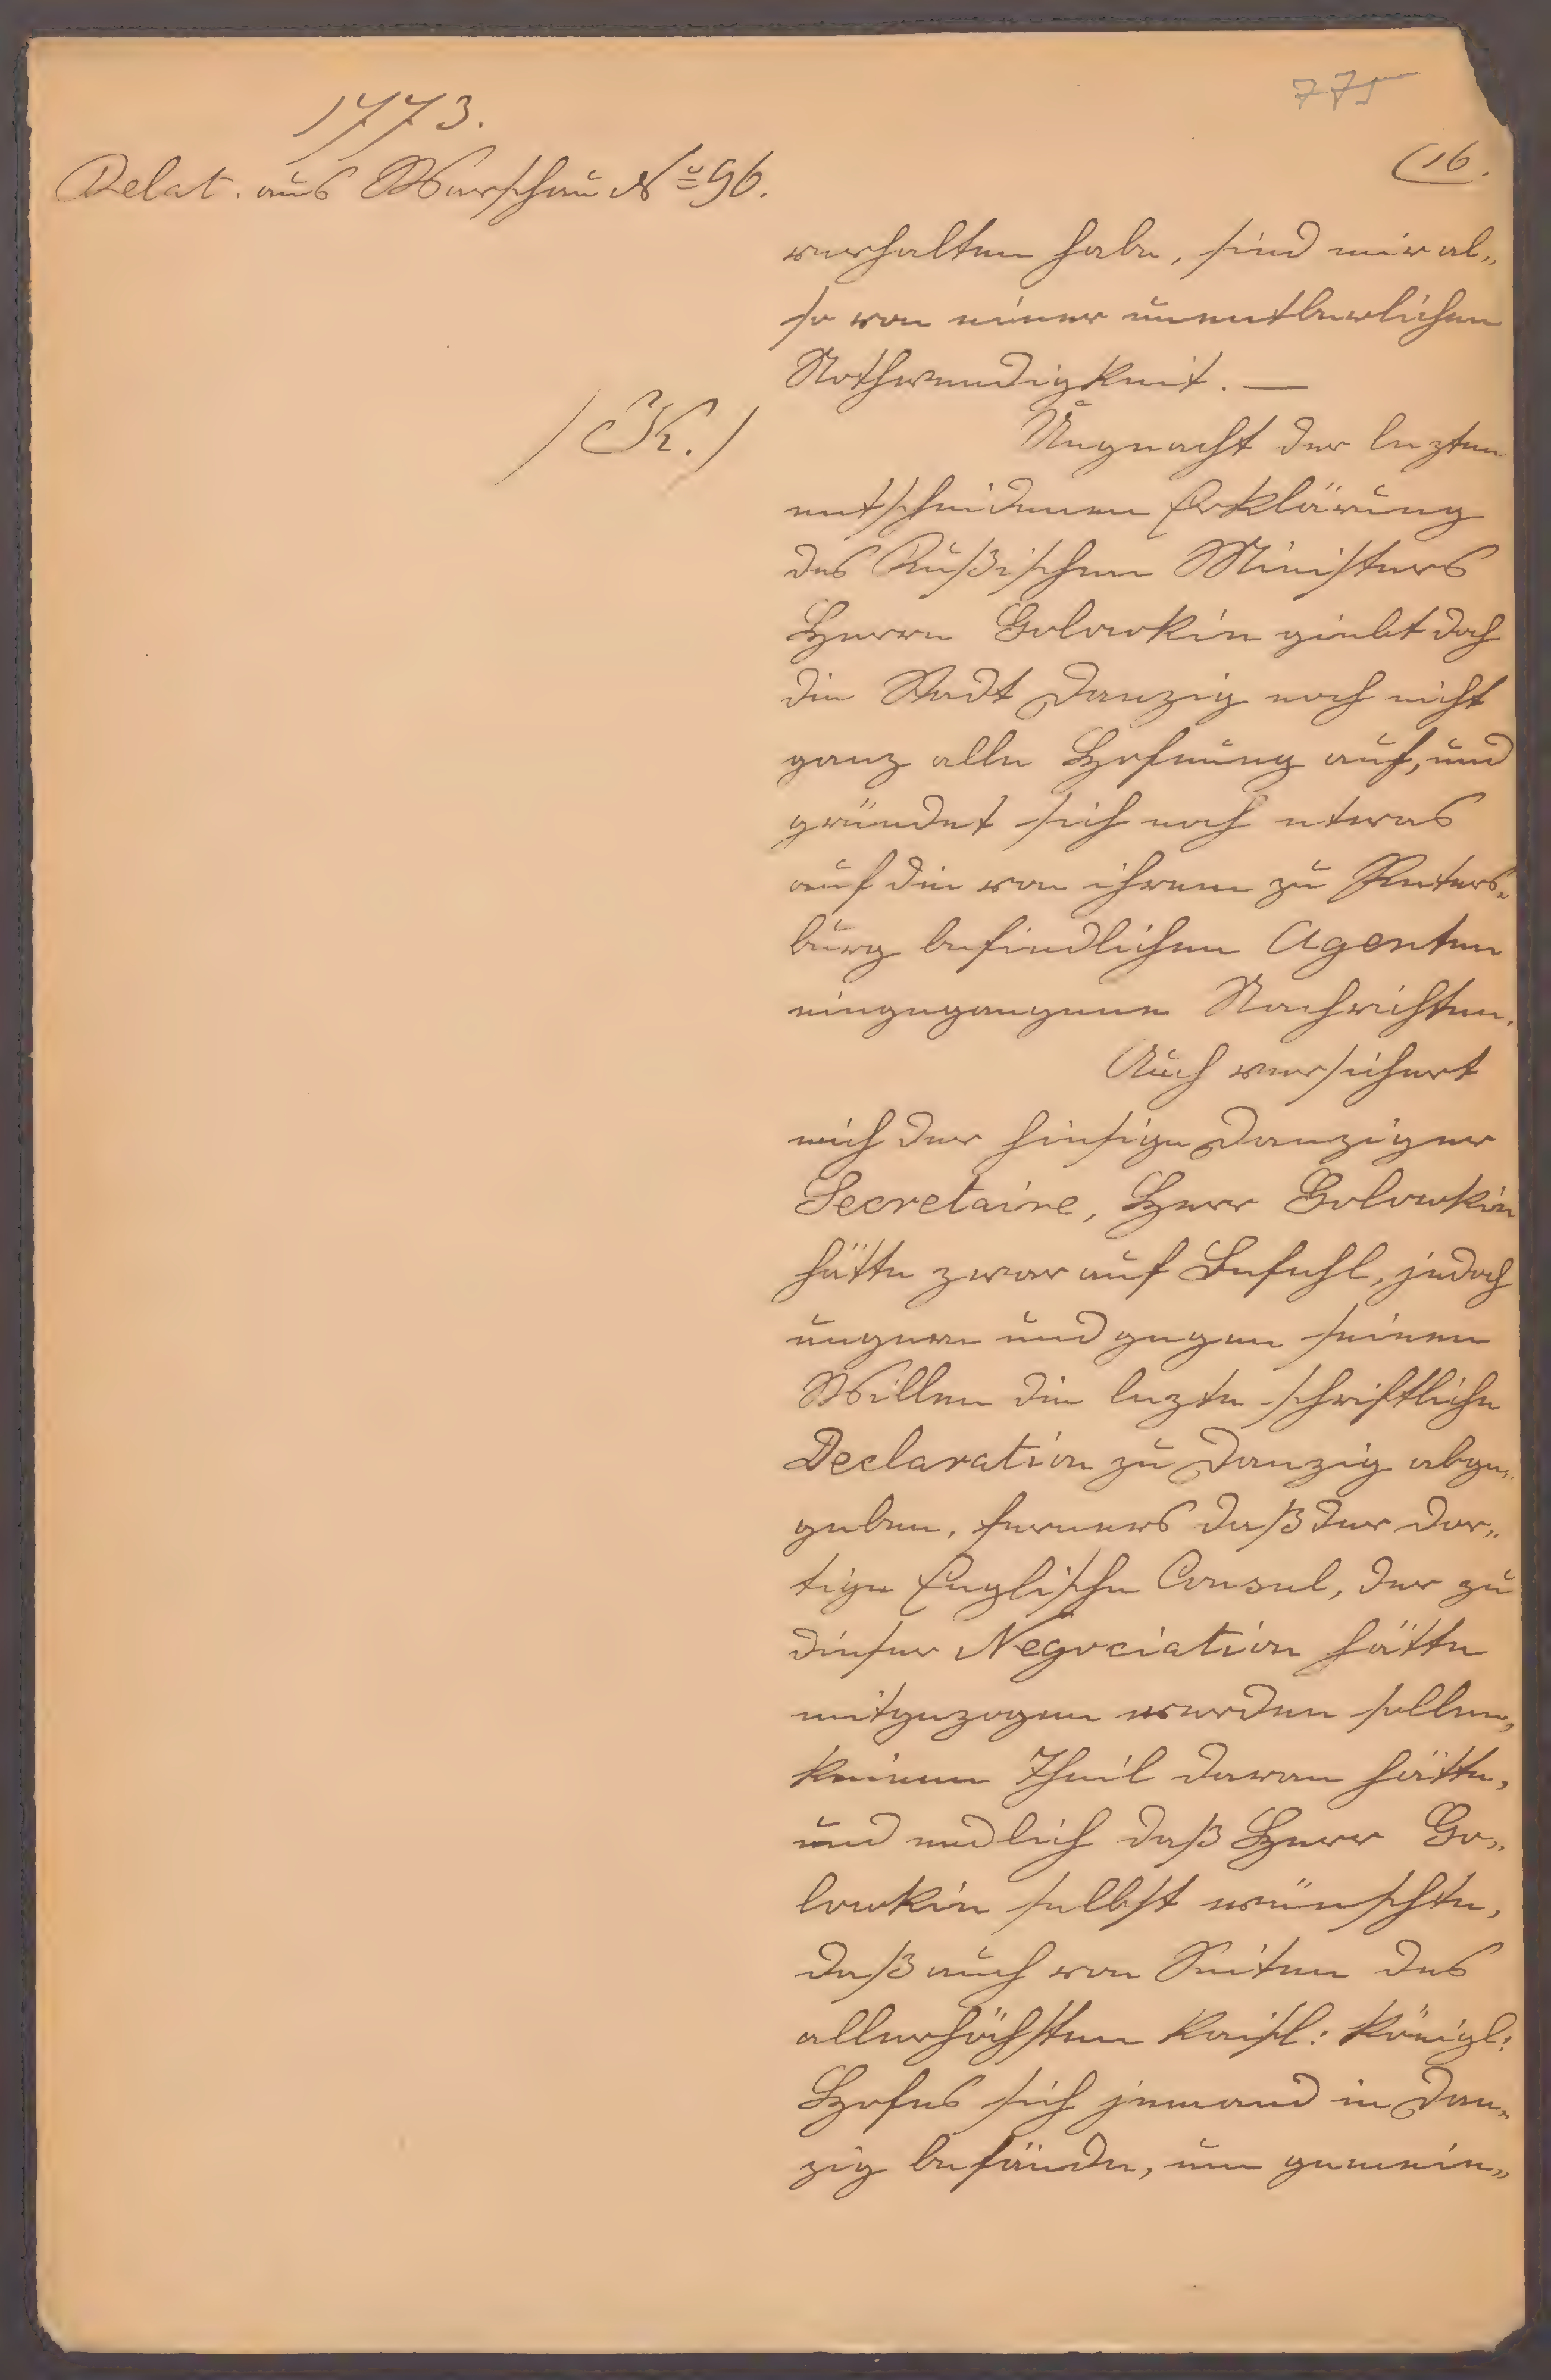 775
1773.
(16.
Relat. aus Warschau No 96.
verhalten habe, sind mir al„
so von einer unentberlichen
Nothwendigkeit. —
/K./
Ungeacht der lezten
entscheidenen Erklärung
des Rußischen Ministers
Herrn Golowkin giebt doch
die Stadt Danzig noch nicht
ganz alle Hofnung auf, und
gründet sich noch etwas
auf die von ihrem zu Peters„
burg befindlichen Agenten
eingegangene Nachrichten.
Auch versichert
mich der hiesige Danziger
Secretaire, Herr Golowkin
hätte zwar auf Befehl, jedoch
ungern und gegen seinen
Willen die lezte schriftliche
Declaration zu Danzig abge„
geben, ferners daß der dor„
tige Englische Consul, der zu
dieser Negociation hätte
mitgezogen werden sollen,
keinen Theil daran hätte,
und endlich daß Herr Go„
lowkin selbst wünschte,
daß auch von Seiten des
allerhöchsten Kaisl: Königl:
Hofes sich jemand in Dan„
zig befände, um gemein„